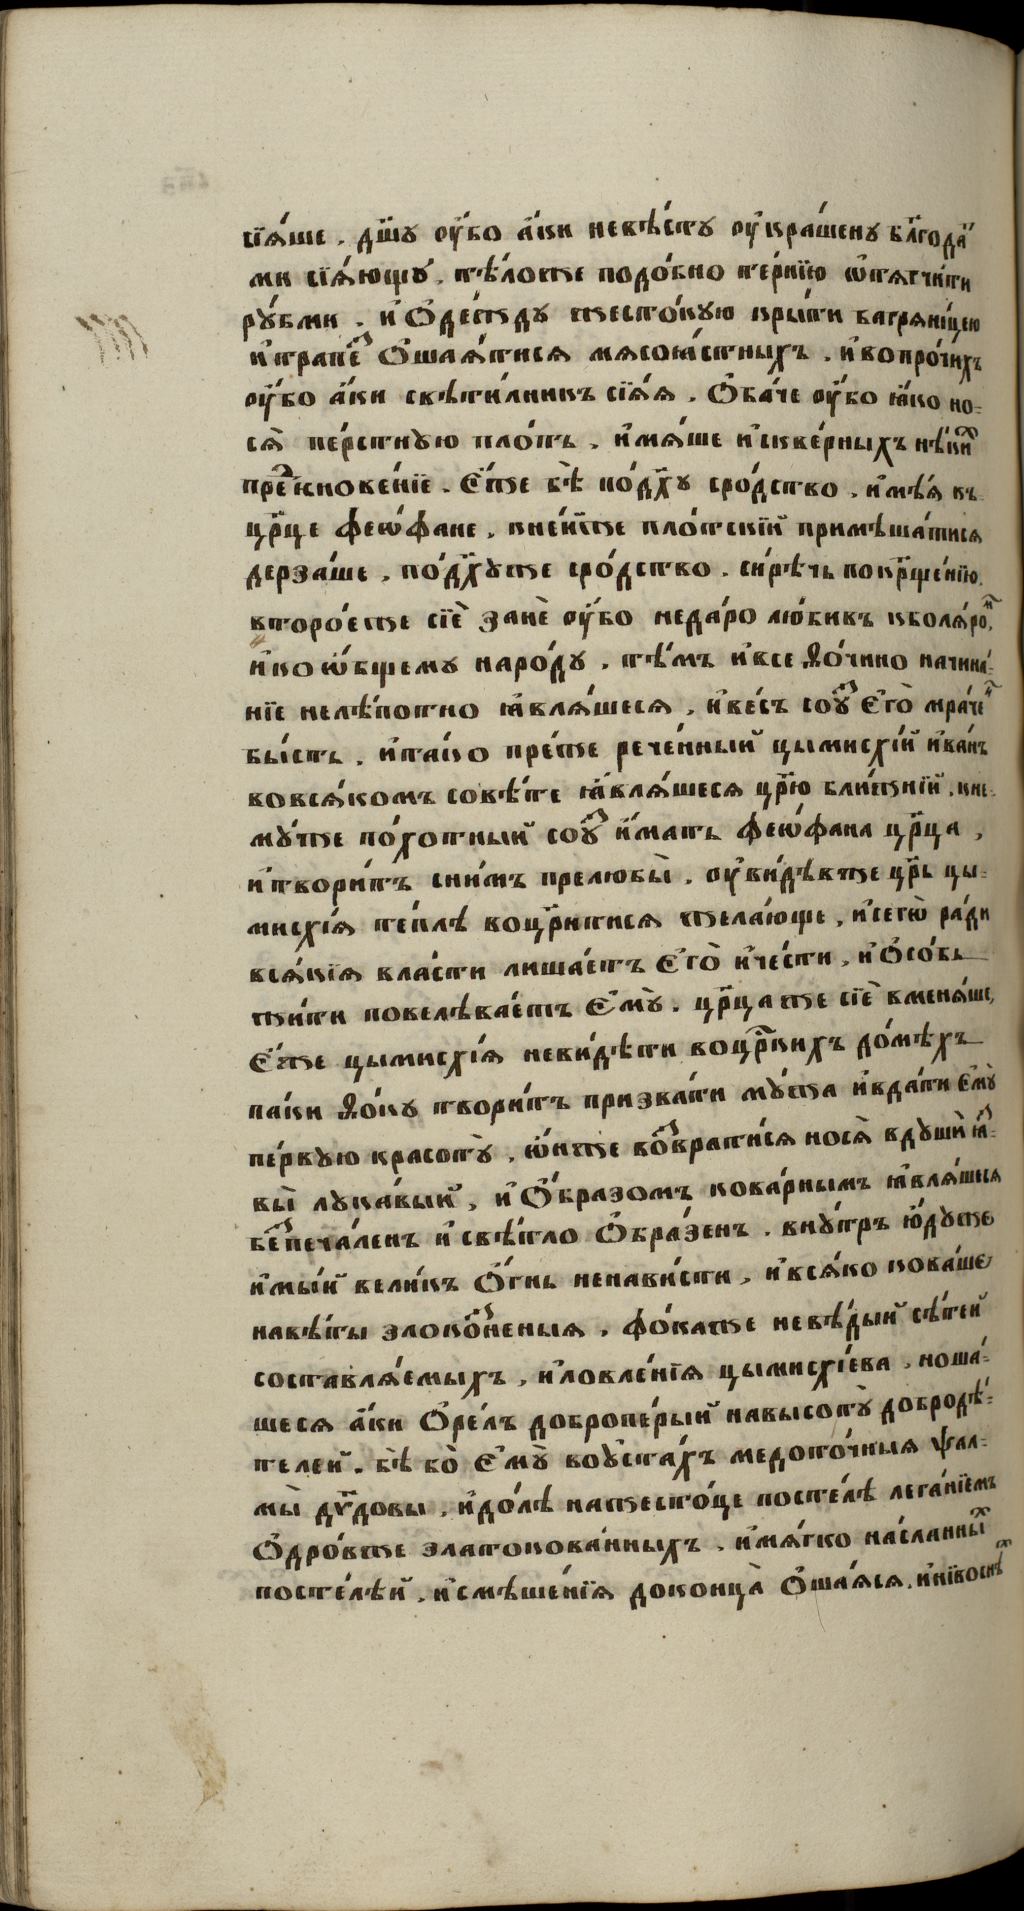 сїѧ́ше. дш҃ꙋ оу҆́бо а҆́ки невѣ́стꙋ оу҆кра́шенꙋ бл҃года́т
ми сїѧ́ющꙋ. тѣ́ложе подо́бно те́рнїю ѡ҆тѧгчи́ти
рꙋ́бми. и҆ ѻ҆де́ждꙋ жесто́кую кры́ти багрѧни́цею
и҆трапе́з ѻ҆шаѧ́тисѧ мѧсоꙗ́стныхъ. и҆во про́чихъ
оу҆́бо а҆́ки свѣти́лникъ сїѧ́ѧ. Ѻ҆ба́че оу҆́бо ꙗ҆́ко но-
сѧ̀ пе́рстную пло́ть. и҆мѧ́ше и҆скве́рныхъ нѣ́ких
прекнове́нїе. Є҆́же бѣ̀ подх҃ꙋ сро́дство. и҆мѣ́ѧ къ
цр҃це феѡ҆́фане. кне́йже пло́тскїй примѣша́тисѧ
дерза́ше. подх҃ꙋже сро́дство. си́рѣчь покрⷭ҇ще́нїю.
второ́еже сїѐ занѐ оу҆́бо недаро лю́бивъ кболѧ́ром,
и҆ко ѡ҆́бщемꙋ наро́дꙋ. тѣ́мъ и҆все Ѳо́чино начина́-
нїе нелѣ́потно ꙗ҆влѧ́шесѧ. и҆ве́съ соую҆з є҆гѡ̀ мра́чен
бы́сть. и҆та́ко пре́же рече́нный цымисхі́й и҆ва́нъ
вовсѧ́комъ совѣ́те ꙗ҆влѧ́шесѧ цр҃ю бли́жнїй. кне-
мꙋ́же по́хотный соую҆з и҆́мать феѡ҆́фана цр҃ца,
и҆твори́тъ сни́мъ прелюбы̀. оу҆ви́дѣвже цр҃ь цы-
мисхі́ѧ те́плѣ воцр҃и́тисѧ жела́юще, и҆сегѡ̀ ра́ди
всѧ́кїѧ вла́сти лиша́етъ Є҆го̀ и҆че́сти, и҆Ѻ҆со́бь
жи́ти повелѣва́етъ Є҆мꙋ̀. цр҃ца же сїѐ вменѧ́ше,
Є҆́же цымисхі́ѧ неви́дѣти воцр҃кихъ до́мѣхъ
паки Ѳо́кꙋ твори́тъ призва́ти мꙋ́жа и҆вда́ти є҆мꙋ̀
пе́рвую красотꙋ̀, ѡ҆́нже возврати́сѧ носѧ̀ вдꙋшѝ ꙗ҆́з-
вы̀ лꙋка́вый, и҆Ѻ҆́бразомъ кова́рнымъ ꙗ҆влѧ́шесѧ
безпеча́ленъ и҆свѣ́тло Ѻ҆бра́зенъ. внꙋ́трь ю҆́дꙋже
и҆мы́й вели́къ Ѻ҆́гнь нена́висти, и҆всѧ́ко кова́ше
навѣ́ты злоко́зненыѧ. фо́каже невѣ́дый сѣ́тей
составлѧ́емыхъ, и҆ловле́нїѧ цымисхі́ева. ноша́-
шесѧ а҆́ки Ѻ҆ре́лъ доброперы́й навысотꙋ̀ добродѣ́-
телей. бѣ̀ бо̀ Є҆мꙋ̀ воꙋ҆ста́хъ медото́чныѧ ѱал-
мы̀ дв҃довы, и҆до́лѣ нажесто́це посте́лѣ лега́нїемъ
Ѻ҆дро́вже златокова́нныхъ. и҆мѧ́гко на́сланных
посте́лѣй. и҆смѣше́нїѧ доконца̀ Ѻ҆шаѧ́сѧ. и҆нївоснѣ